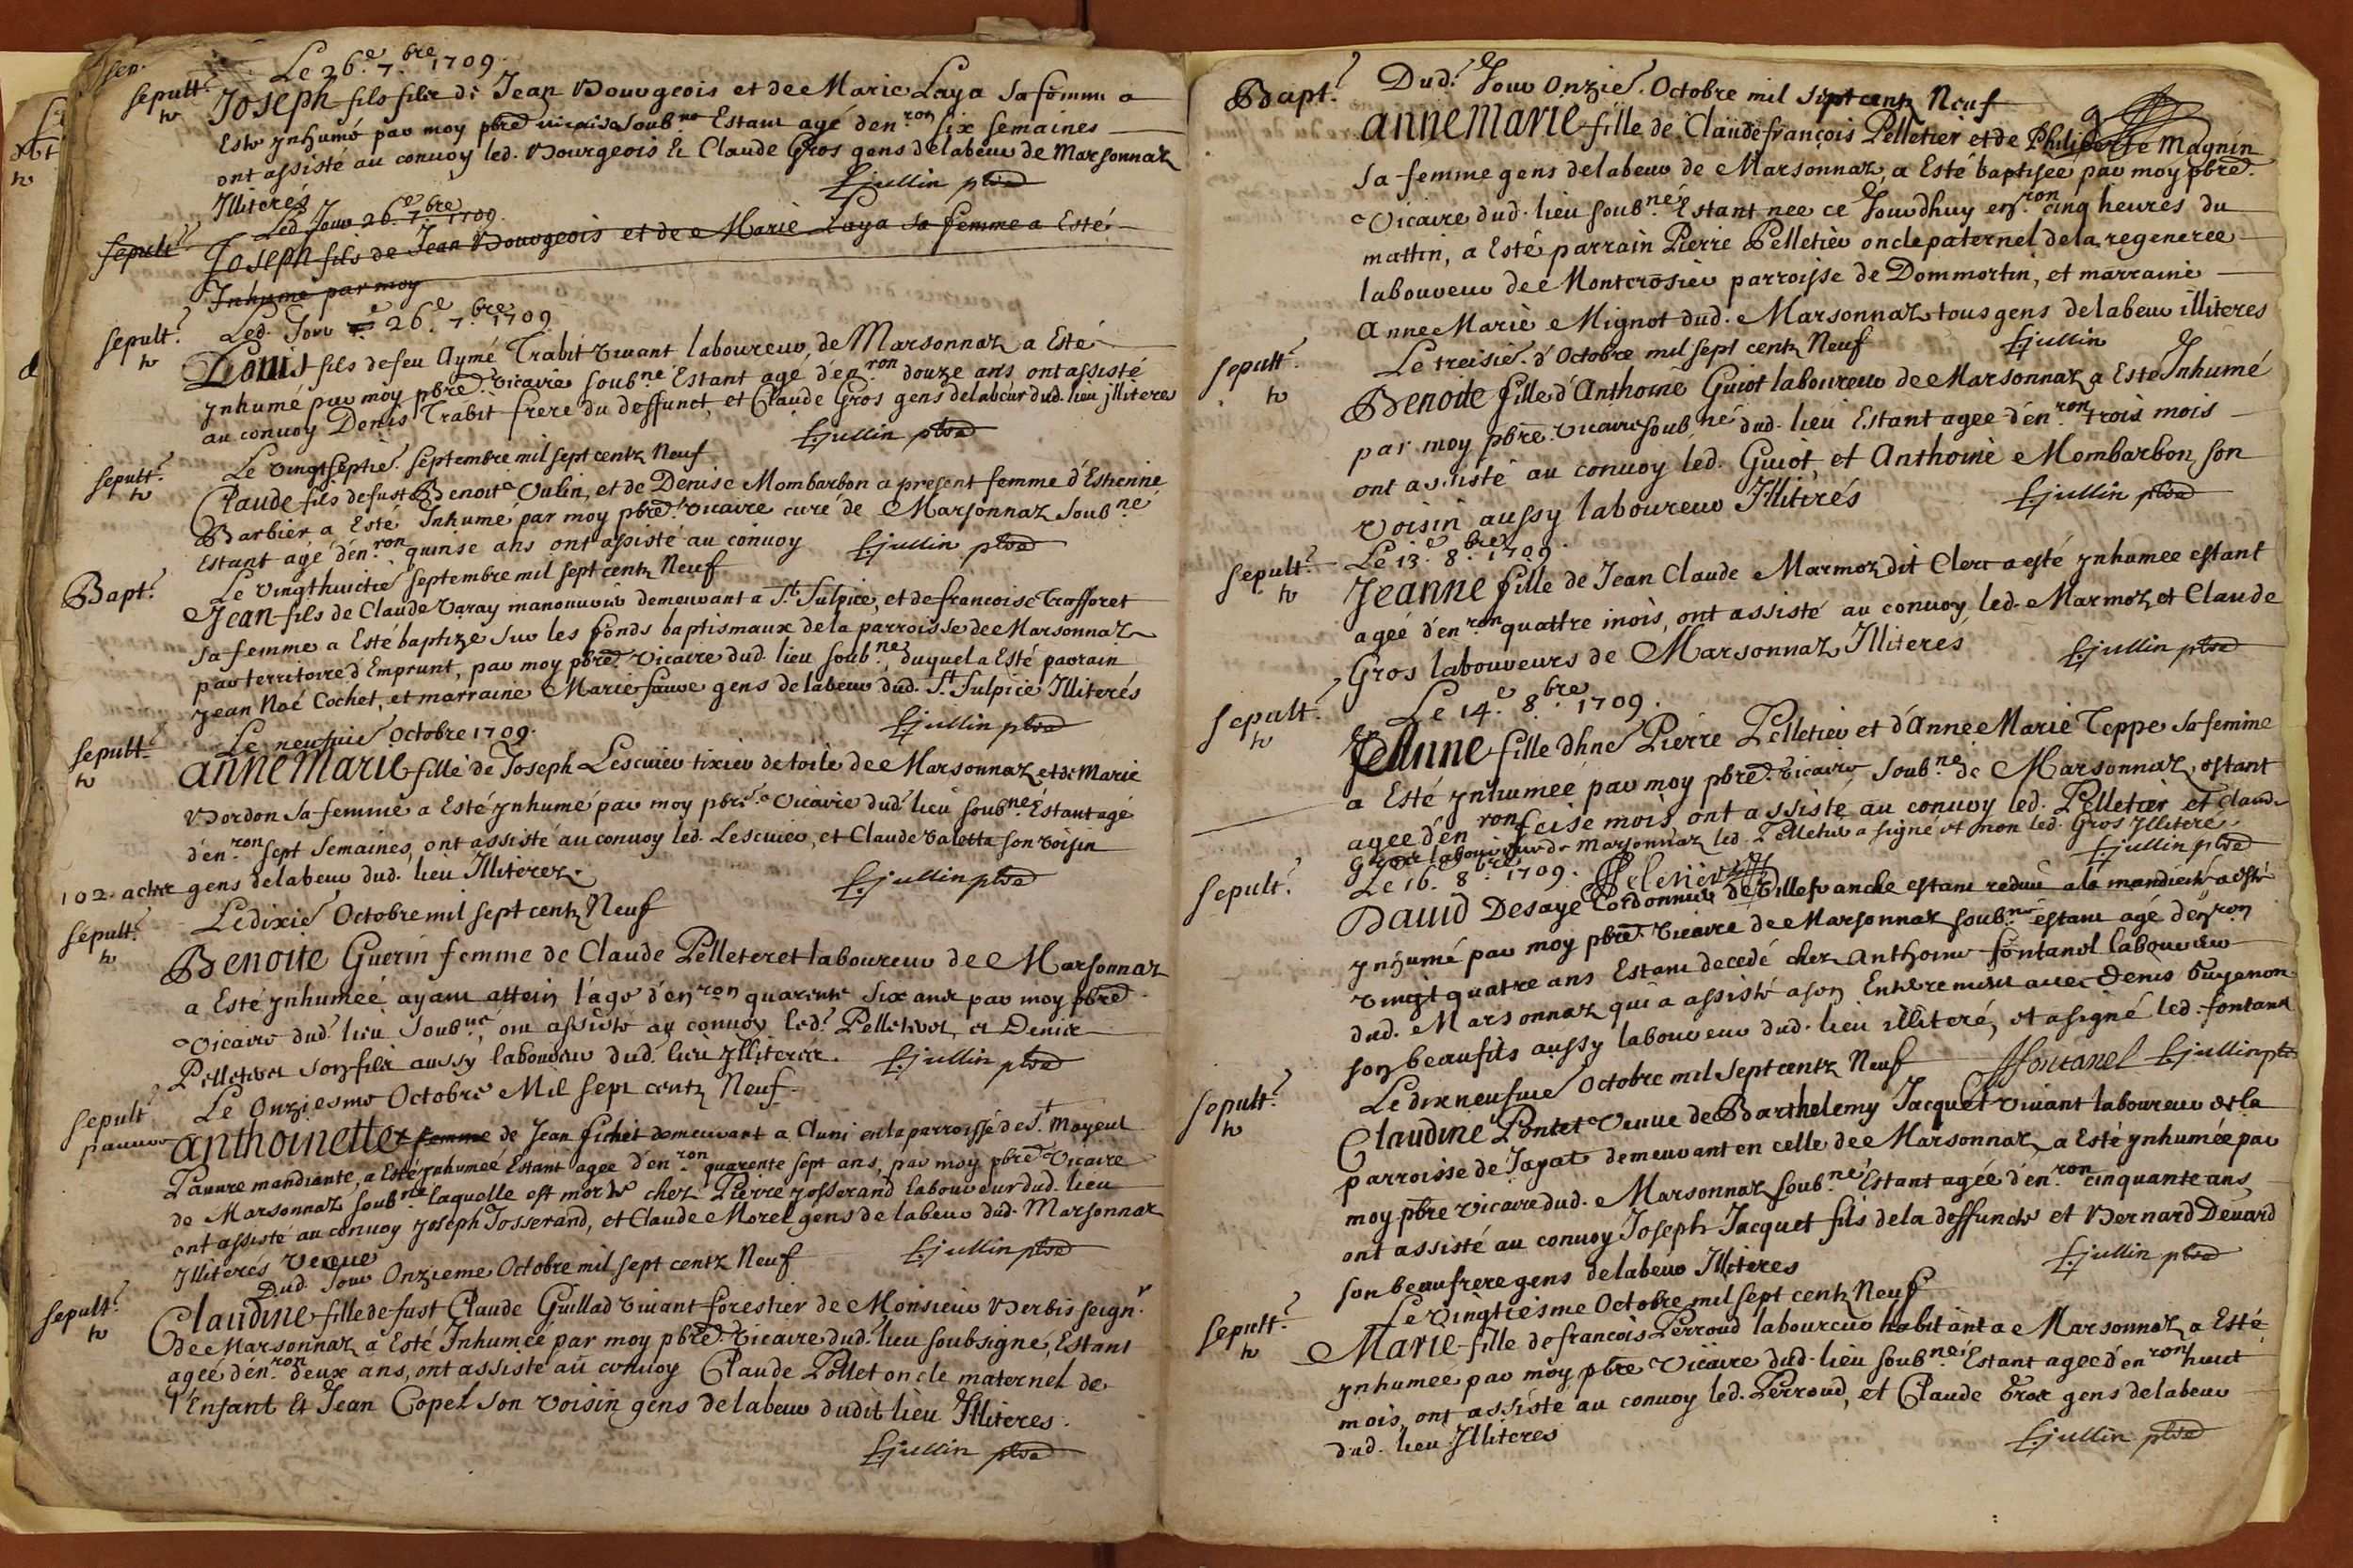 Le 26.e 7.bre 1709.
Sepult.
Joseph fils de Jean Bourgeois et de Marie Laya sa femme a
Este ynhumé par moy pbre vicaire soub.né Estant agé d'en.ron six semaines
ont assisté au convoy led. Bourgeois et Claude Gros gens de labeur de Marsonnaz
Illiterés
E. jullin pbre
Led. Jour 26.e 7.bre 1709.
Sepult.
Joseph fils de Jean Bourgeois et de Marie Laya sa femme a Esté
Inhumé par moy
Led. Jour 26.e 7.bre 1709
Sepult.
Denis fils de feu Aymé Trabit vivant laboureur de Marsonnaz a Esté
ynhumé par moy pbre. vicaire soub.né Estant agé d'en.ron douze ans ont assisté
au convoy Denis Trabit frere du deffunct, et Claude Gros gens de labeur dud. lieu jlliteres
E. jullin pbre
Le vingtseptie. septembre mil sept centz Neuf
Sepult.
Claude fils de fust Benoit Vulin, et de Denise Mombarbon a present femme d'Estienne
Barbier a Esté Inhumé par moy pbre. vicaire curé de Marsonnaz soub.né
Estant agé d'en.ron quinse ans ont assisté au convoy
E. jullin pbre
Le vingthuictie septembre mil sept centz Neuf
Bapt.
Jean fils de Claude Varay manouvrier demeurant a St. Sulpice, et de francoise Trafforet
sa femme a Esté baptize sur les fonds baptismaux de la parroisse de Marsonnaz
par territoire d'Emprunt, par moy pbre. vicaire dud. lieu soub.né, duquel a Esté parrain
Jean Noé Cochet, et marraine Marie fauve gens de labeur dud. St. Sulpice Illiterés
E. jullin pbre
Le neufvie Octobre 1709.
Sepult.
anne Marie fille de Joseph Lescuier tixier de toile de Marsonnaz et de Marie
Bordon sa femme a Esté ynhumé par moy pbre. vicaire dud. lieu soub.né Estant agé
d'en.ron sept semaines, ont assisté au convoy led. Lescuier, et Claude Valetta son voisin
102. actes gens de labeur dud. lieu Illiterez.
E. jullin pbre
Le dixie Octobre mil sept centz Neuf
Sepult.
Benoite Guerin femme de Claude Pelleteret laboureur de Marsonnaz
a Esté ynhumée ayant attein l'age d'en.ron quarente six ans par moy pbre
vicaire dud. lieu soub.né, ont assisté au convoy led. Pelleteret, et Denis
Pelleteret son fils aussy laboureur dud. lieu ylliterés.
E. jullin pbre
Le Onziesme Octobre Mil sept centz Neuf.
Sepult
pauvre
anthoinette femme de Jean fichet demeurant a Cluni en la parroisse de St. Mayeul
Pauvre mandiante, a Esté ynhumée Estant agée d'en.ron quarente sept ans, par moy pbre. Vicaire
de Marsonnaz soub.né laquelle est morte chez Pierre Josserand laboureur dud. lieu
ont assisté au convoy Joseph Josserand, et Claude Morel gens de labeur dud. Marsonnaz
Illiterés
E. jullin pbre
Dud. Jour Onzieme Octobre mil sept centz Neuf
Sepult.
Claudine fille de fust Claude Guillad vivant forestier de Monsieur Berbis seign.r
de Marsonnaz a Esté Inhumée par moy pbre. vicaire dud. lieu soubsigné, Estant
agée d'en.ron deux ans, ont assisté au convoy Claude Pollet oncle maternel de
l'Enfant Et Jean Copel son voisin gens de labeur dudit lieu Illiteres.
E. jullin pbre
Dud. Jour Onzie. Octobre mil sept centz Neuf
Bapt.
anne Marie fille de Claude françois Pelletier et de Philiberte Magnin
sa femme gens de labeur de Marsonnaz, a Esté baptisee par moy pbre.
vicaire dud. lieu soub.né Estant nee ce Jourdhuy en.ron cinq heures du
mattin, a Esté parrain Pierre Pelletier oncle paternel de la regeneree
laboureur de Montcrosier parroisse de Dommortin, et marraine
Anne Marie Mignot dud. Marsonnaz tous gens de labeur illiteres
E. jullin
Le treisie. d'Octobre mil sept centz Neuf
Sepult.
Benoite fille d'Anthoine Guiot laboureur de Marsonnaz a Esté Inhumé
par moy pbre. vicaire soub.né dud. lieu Estant agee d'en.ron trois mois
ont assisté au convoy led. Guiot, et Anthoine Mombarbon son
voisin aussy laboureur Illiterés
E. jullin pbre
Le 13.e 8.bre 1709.
Sepult.
Jeanne fille de Jean Claude Marmoz dit Clerc a esté ynhumee estant
ageé d'en.ron quattre mois, ont assisté au convoy led. Marmoz et Claude
Gros laboureurs de Marsonnaz Illiterés
E. jullin pbre
Le 14.e 8.bre 1709.
Sepult.
Jeanne fille dhne Pierre Pelletier et d'Anne Marie Teppe sa femme
a Esté ynhumeé par moy pbre. vicaire soub.né de Marsonnaz, estant
agee d'en.ron seise mois ont assisté au convoy led. Pelletier et Claude
Gros laboureur de Marsonnaz led. Pelletier a signé et non led. Gros Illiteré.
E. jullin pbre
Le 16.e 8.bre 1709. Peletier
Sepult.
David Desaye Cordonnier de villefranche estant reduit a la mandicité a esté
ynhumé par moy pbre. vicaire de Marsonnaz soub.né estant agé d'en.ron
vingt quatre ans Estant decedé chez anthoine fontanel laboureur
dud. Marsonnaz qui a assisté a son Enterrement avec Denis Guyenon
son beaufils aussy laboureur dud. lieu illiteré, et a signé led. fontanel
ffontanel E. jullin pbre
Le dixneufvie Octobre mil sept centz Neuf
Sepult.
Claudine Pontet veuve de Barthelemy Jacquet vivant laboureur de la
parroisse de Jayat demeurant en celle de Marsonnaz, a Esté ynhumée par
moy pbre vicaire dud. Marsonnaz soub.né Estant agée d'en.ron cinquante ans,
ont assisté au convoy Joseph Jacquet fils de la deffuncte et Bernard Devard
son beaufrere gens de labeur Illiteres
E. jullin pbre
Le vingtiesme Octobre mil sept centz Neuf
Sepult.
Marie fille de francois Perroud laboureur habitant a Marsonnaz a Esté
ynhumeé par moy pbre vicaire dud. lieu soub.né Estant agee d'en.ron huit
mois, ont assisté au convoy led. Perroud, et Claude Gros gens de labeur
dud. lieu Illiteres
E. jullin pbre